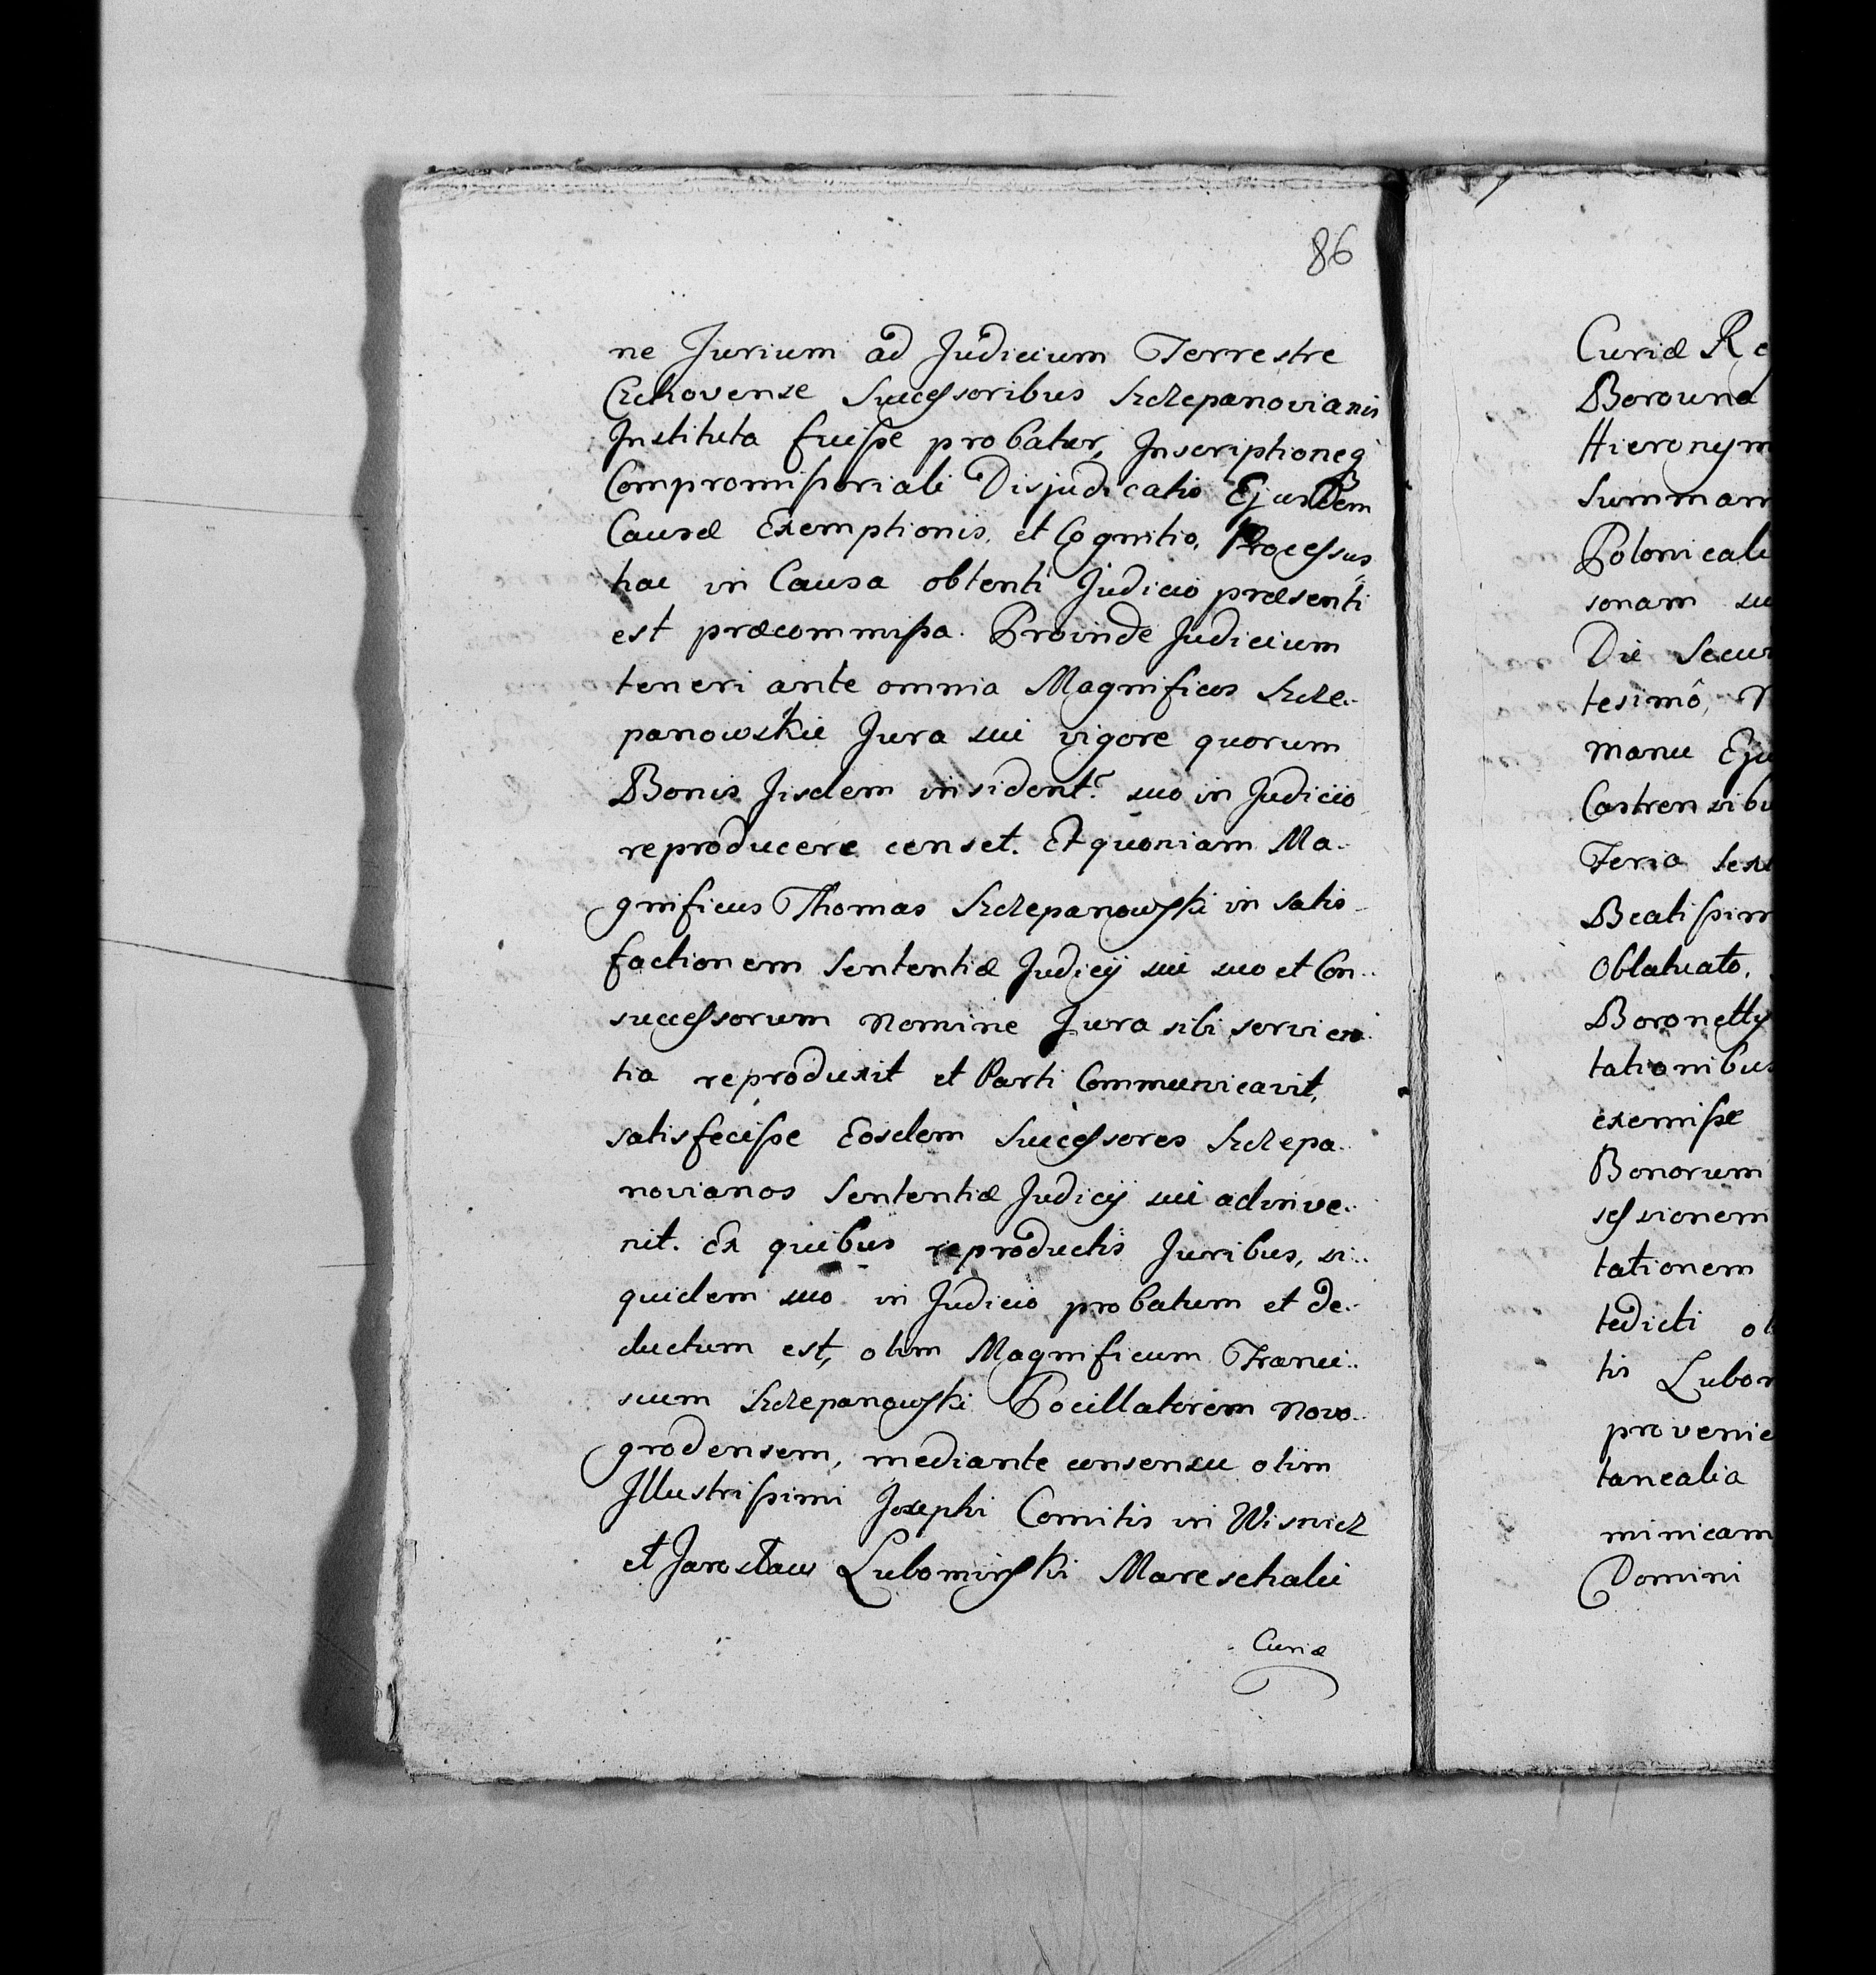 86
ne Jurium ad Judicium Terrestre
Czchovense Successoribus Szczepanovianis
Instituta fuisse probatur, Inscriptioneq
Compromissoriali Disjudicatio Ejusdem
Causæ Exemptionis, et Cognitio, Processus
hac in Causa obtenti Judicio præsenti
est præcommissa. Proinde Judicium
teneri ante omnia Magnificos Szcze-
panowskie Jura sui vigore quorum
Bonis Jisdem insident. suo in Judicio
reproducere censet. Et quoniam Ma-
gnificus Thomas Szczepanowski in satis-
factionem Sententiæ Judicÿ sui suo et Con-
successorum Nomine Jura sibi servien-
tia reproduxit et Parti Communicavit,
satisfecisse Eosdem Successores Szczepa-
novianos Sententiæ Judicÿ sui adinve-
nit. Ex quibus reproductis Juribus, si-
quidem suo in Judicio probatum et de-
ductum est, olim Magnificum Franci-
scum Szczepanowski Pocillatorem Novo-
grodensem, mediante consensu olim
Illustrissimi Josephi Comitis in Wisnicz
et Jarosław Lubomirski Mareschalii
Curiæ
Curiæ Reg
Borouna
Hieronym
Summam
Polonicali
sonam su
Die Secun
tesimô,
Manu Eju
Castrensibu
Feria sex
Beatissim
Oblatuato,
Boronetty
tationibus
exemisse
Bonorum
sessionem
tationem
tedicti ol
tis Lubom
provenie
tanealia
minicam
Domini